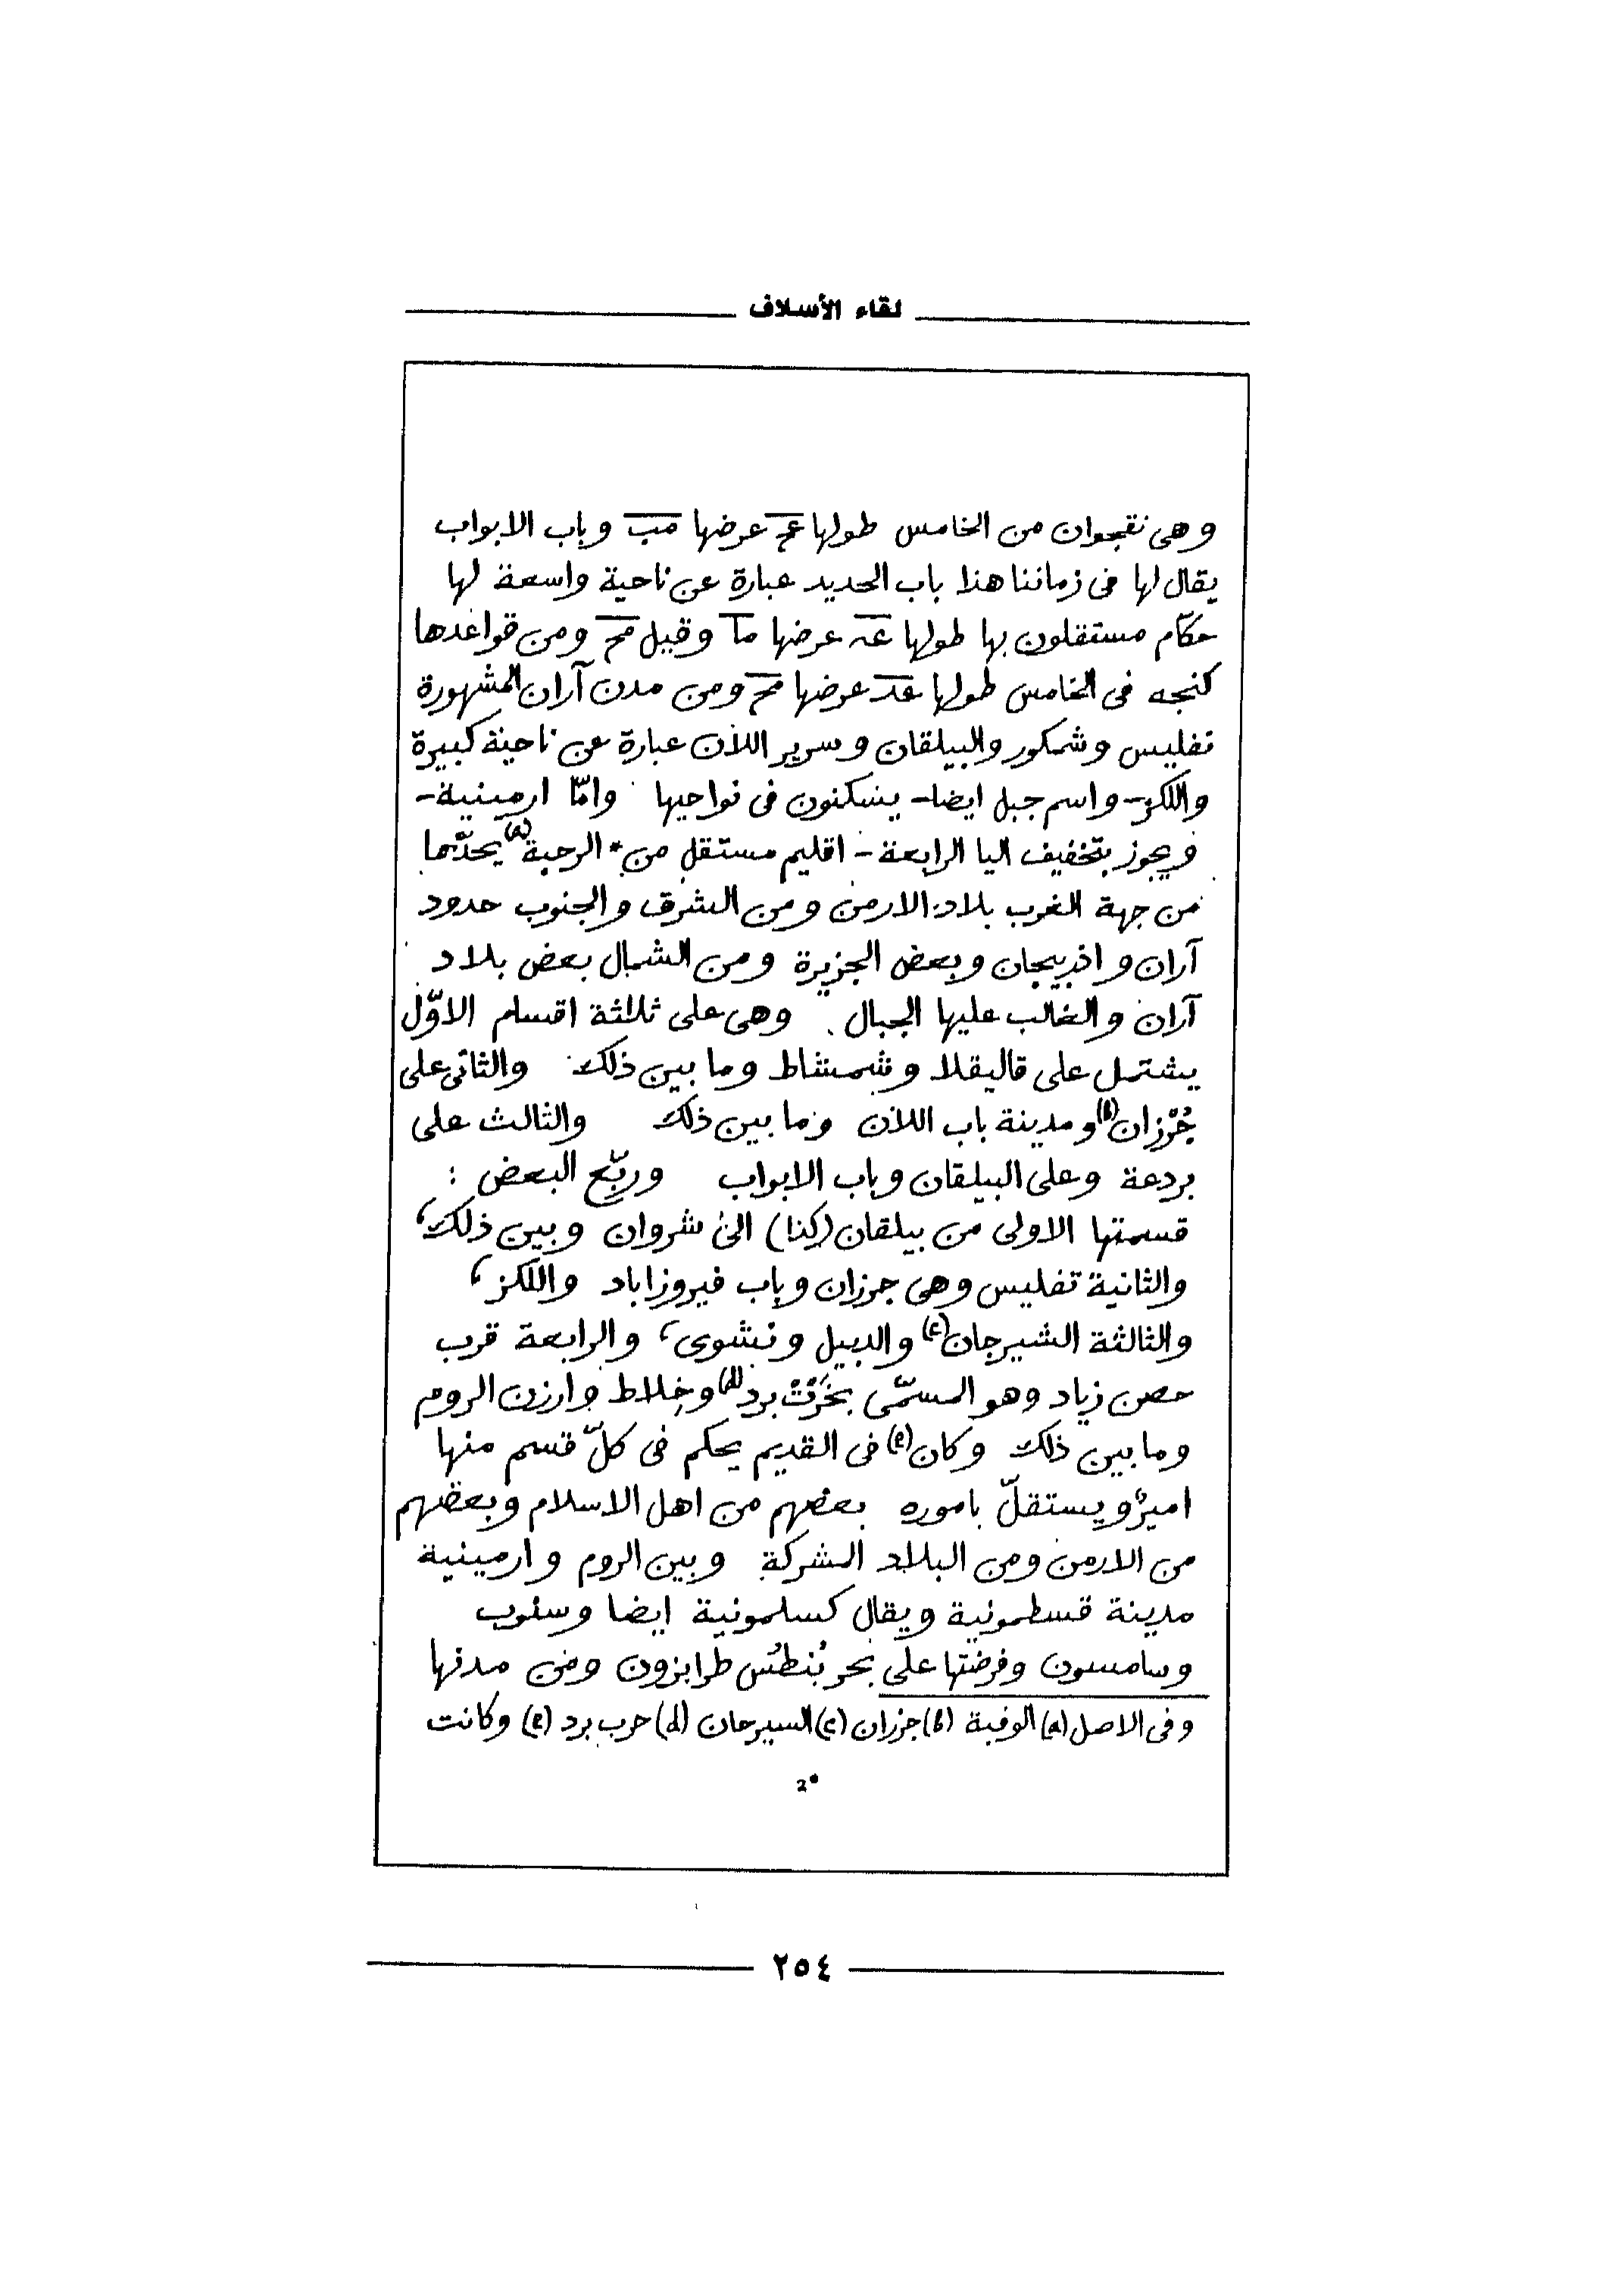 لقاء الأسلاف
وهى نقجوان من الخامس طولها عج عرضها مب وباب الابواب
يقال لها فى زماننا هذا باب الحديد عبارة عن ناحية واسعة لها
حكّام مستقلون بها طولها عہ عرضها ما وقيل مح ومن قواعدها
كنجه فى الخامس طولها عد عرضها مح ومن مدن آران المشهورة
تفليس وشمكور والبيلقان وسرير اللان عبارة عن ناحية كبيرة
واللكز - واسم جبل ايضا - يسكنون فى نواحيها وامّا ارمينية -
ويجوز بتخفيف اليا الرابعة - اقليم مستقل من * الرحبة (a) يحدّها
من جهة الغرب بلاد الارمن ومن الشرق والجنوب حدود
آران واذربيجان وبعض الجزيرة ومن الشمال بعض بلاد
آران والغالب عليها الجبال . وهى على ثلاثة اقسام الاوّل
يشتمل على قاليقلا وشمشاط وما بين ذلك والثانى على
جُرْزان (b) ومدينة باب اللان وما بين ذلك والثالث على
بردعة وعلى البيلقان وباب الابواب وربّع البعض :
قسمتها الاولى من بيلقان (كذا) الى شروان وبين ذلك،
والثانية تفليس وهى جرزان وباب فيروزاباد واللكز،
والثالثة الشيرجان (c) والدبيل ونشوى، والرابعة قرب
حصن زياد وهو المسمّى بخَرْتْ برد (d) وخِلاط وارزن الروم
وما بين ذلك وكان (e) فى القديم يحكم فى كلّ قسم منها
اميرٌ ويستقلّ باموره بعضهم من اهل الاسلام وبعضهم
من الارمن ومن البلاد الشركة وبين الروم وارمينية
مدينة قسطمونية ويقال كسلمونية ايضا وسنوب
وسامسون وفرضتها على بحر بُنطُس طرابزون ومن مدنها
وفى الاصل (a) الوفية (b) جزران (c) السيرحان (d) حرب برد (e) وكانت
2*
٢٥٤